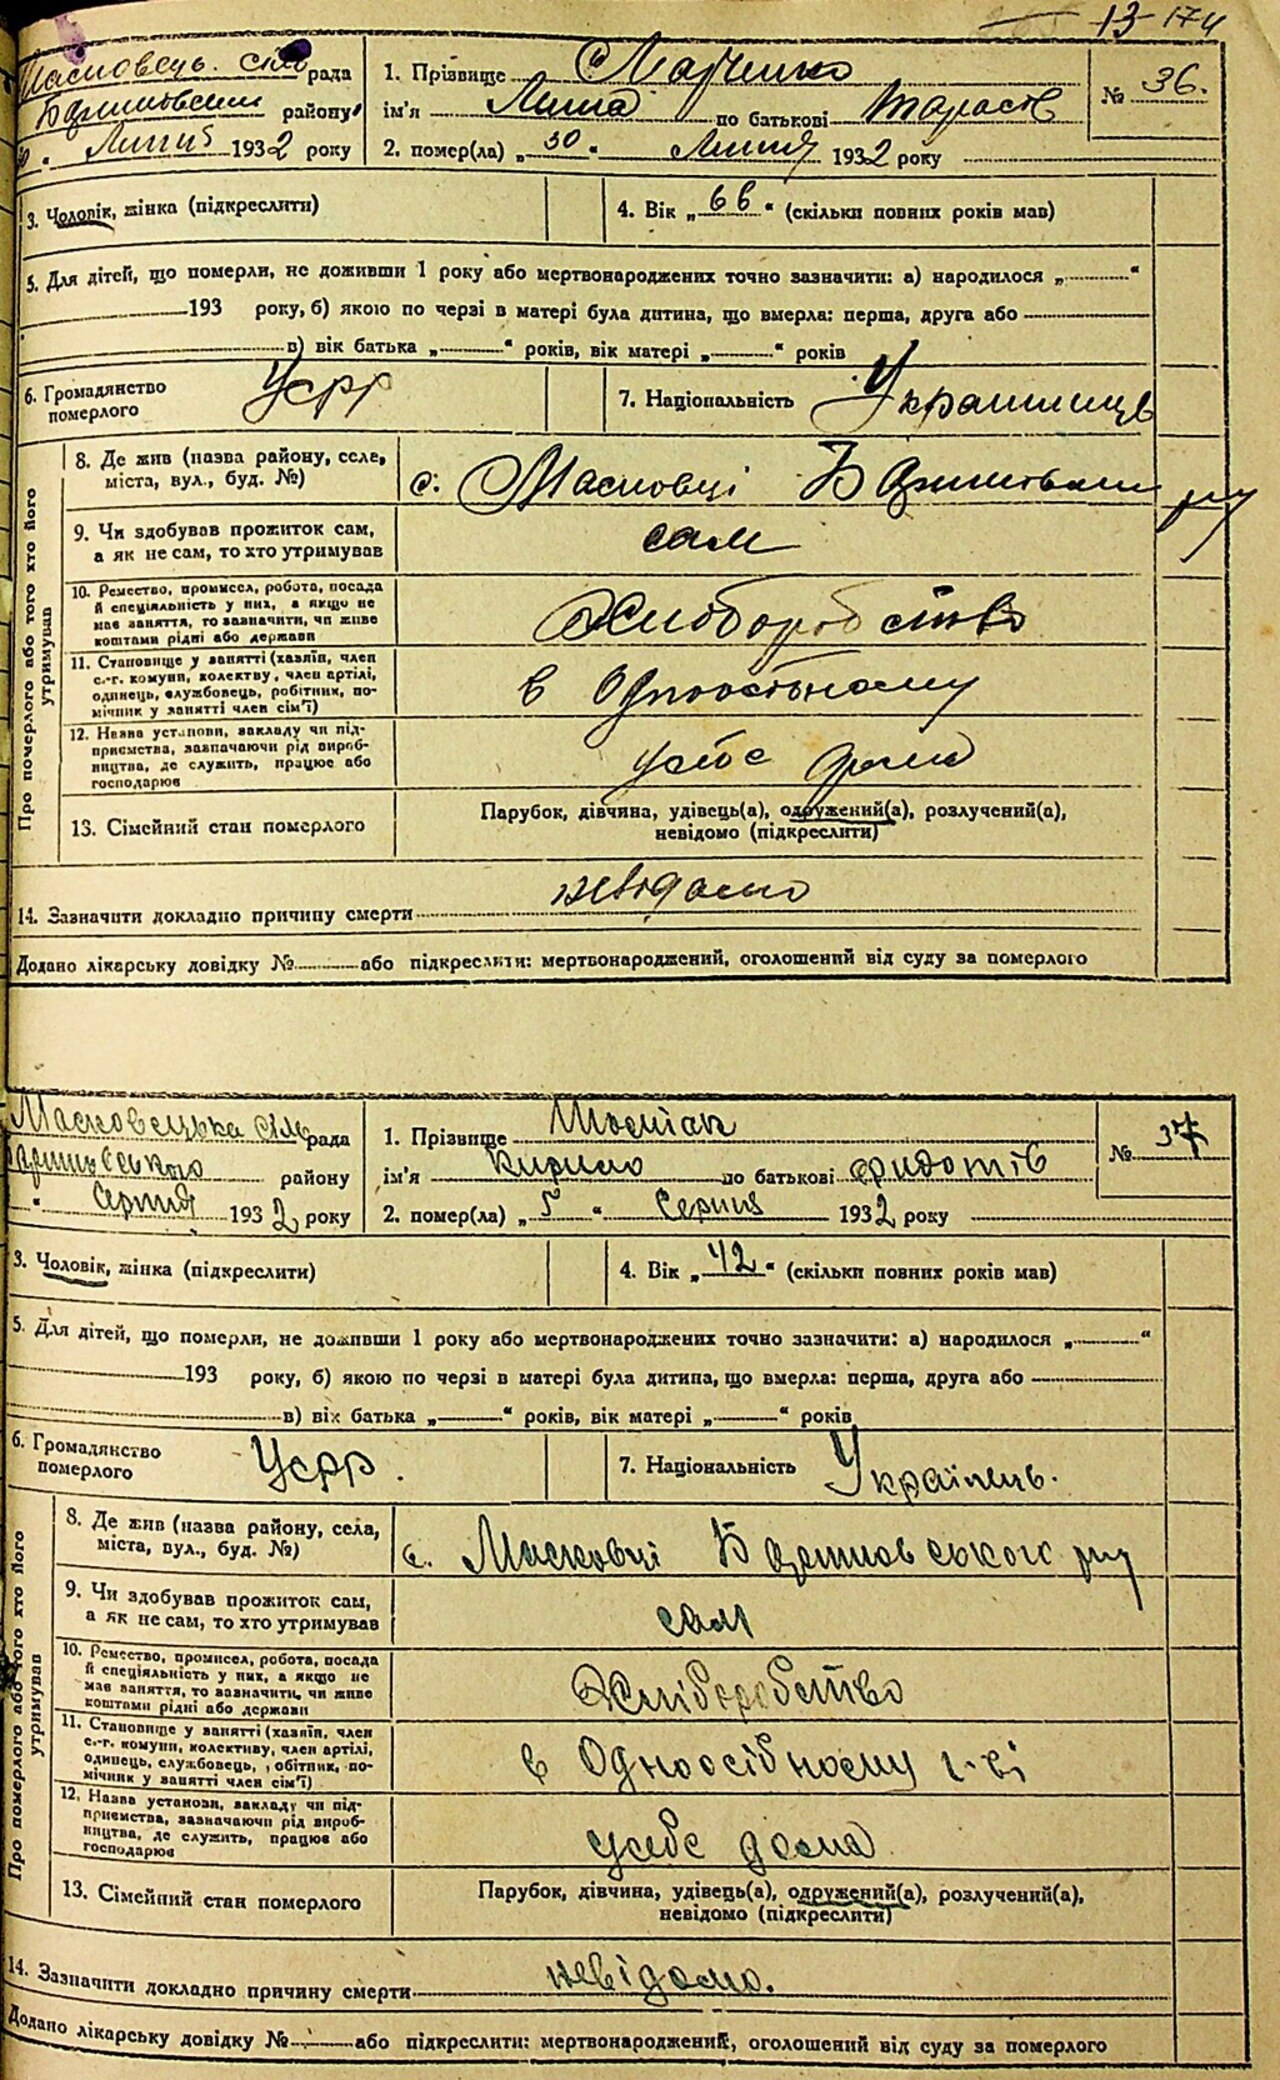 13 174
рада
району
Липня 1932 року
1. Прізвище Марченко
ім'я по батькові Тарасов
№ 36.
2. помер(ла) „30“ Липня 1932 року
3. Чоловік, жінка (підкреслити)
4. Вік „66“ (скільки повних років мав)
5. Для дітей, що померли, не доживши 1 року або мертвонароджених точно зазначити: а) народилося „ “
193 року, б) якою по черзі в матері була дитина, що вмерла: перша, друга або
в) вік батька „ “ років, вік матері „ “ років
6. Громадянство померлого Усрр
7. Національність Українець
Про померлого або того хто його утримував
8. Де жив (назва району, селе, міста, вул., буд. №)
с. Масковці
9. Чи здобував прожиток сам, а як не сам, то хто утримував
сам
10. Ремество, промисел, робота, посада й спеціяльність у них, а якщо не має заняття, то зазначити, чи живе коштами рідні або держави
Хліборобство
11. Становище у занятті (хазяїн, член с.-г. комуни, колектву, член артілі, одинець, службовець, робітник, помічник у занятті член сім'ї)
в
12. Назва установи, закладу чи підприємства, зазначаючи рід виробництва, де служить, працює або господарює
у себе дома
13. Сімейний стан померлого
Парубок, дівчина, удівець(а), одружений(а), розлучений(а), невідомо (підкреслити)
14. Зазначити докладно причину смерти невідомо
Додано лікарську довідку № або підкреслити: мертвонароджений, оголошений від суду за померлого
Масковецька сіль рада
району
Серпня 1932 року
1. Прізвище
ім'я Кирило по батькові
№ 37
2. помер(ла) „5“ Серпня 1932 року
3. Чоловік, жінка (підкреслити)
4. Вік „42“ (скільки повних років мав)
5. Для дітей, що померли, не доживши 1 року або мертвонароджених точно зазначити: а) народилося „ “
193 року, б) якою по черзі в матері була дитина, що вмерла: перша, друга або
в) вік батька „ “ років, вік матері „ “ років
6. Громадянство померлого Усрр.
7. Національність Українець.
Про померлого або того хто його утримував
8. Де жив (назва району, села, міста, вул., буд. №)
с. Масковці Баришовського р-ну
9. Чи здобував прожиток сам, а як не сам, то хто утримував
сам
10. Ремество, промисел, робота, посада й спеціяльність у них, а якщо не має заняття, то зазначити, чи живе коштами рідні або держави
Хліборобство
11. Становище у занятті (хазяїн, член с.-г. комуни, колективу, член артілі, одинець, службовець, робітник, помічник у занятті член сім'ї)
в Одноосібному г-ві
12. Назва установи, закладу чи підприємства, зазначаючи рід виробництва, де служить, працює або господарює
у себе дома
13. Сімейний стан померлого
Парубок, дівчина, удівець(а), одружений(а), розлучений(а), невідомо (підкреслити)
14. Зазначити докладно причину смерти невідомо.
Додано лікарську довідку № або підкреслити: мертвонароджений, оголошений від суду за померлого